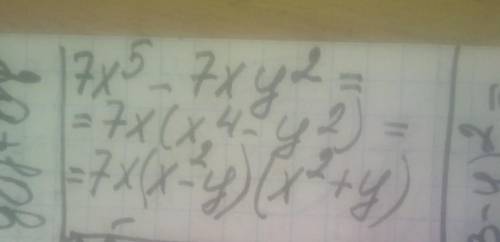 7x⁵ - 7xy² =
= 7x(x⁴ - y²) =
= 7x(x² - y)(x² + y)